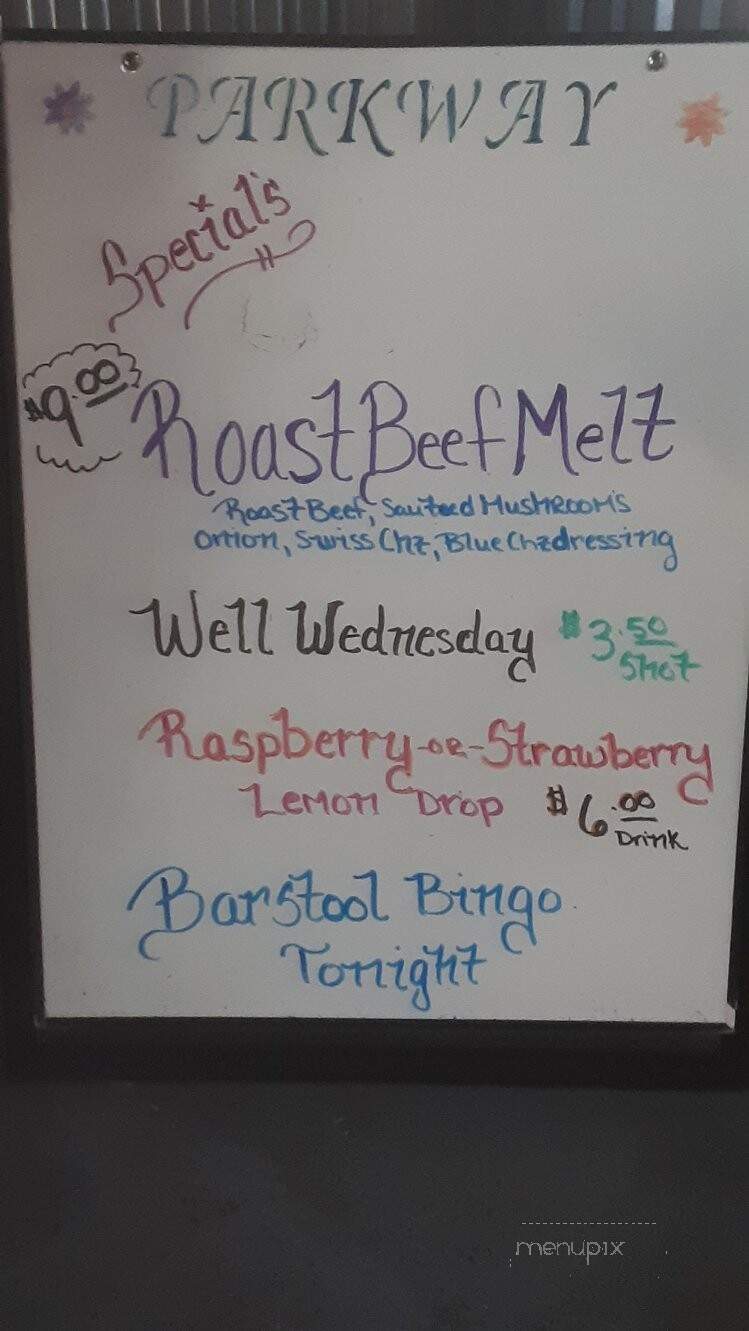 PARKWAY
Special's
$9.00
Roast Beef Melt
Roast Beef, Sauteed Mushroom's
onion, Swiss Chz, Blue Chz dressing
Well Wednesday $3.50
Shot
Raspberry -or- Strawberry
Lemon Drop $6.00
Drink
Barstool Bingo
Tonight
menupix